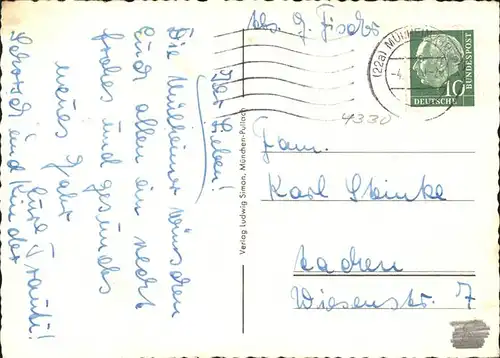 Abs. G. Fischer
Ihr Lieben!
Die Mülheimer wünschen
Euch allen ein recht
frohes und gesundes
neues Jahr
Eure Traute!
und Kinder
Verlag Ludwig Simon, München-Pullach
(22a) MÜLHEIM
DEUTSCHE
BUNDESPOST
10
4330
Fam.
Karl
Wiesenstr. 7